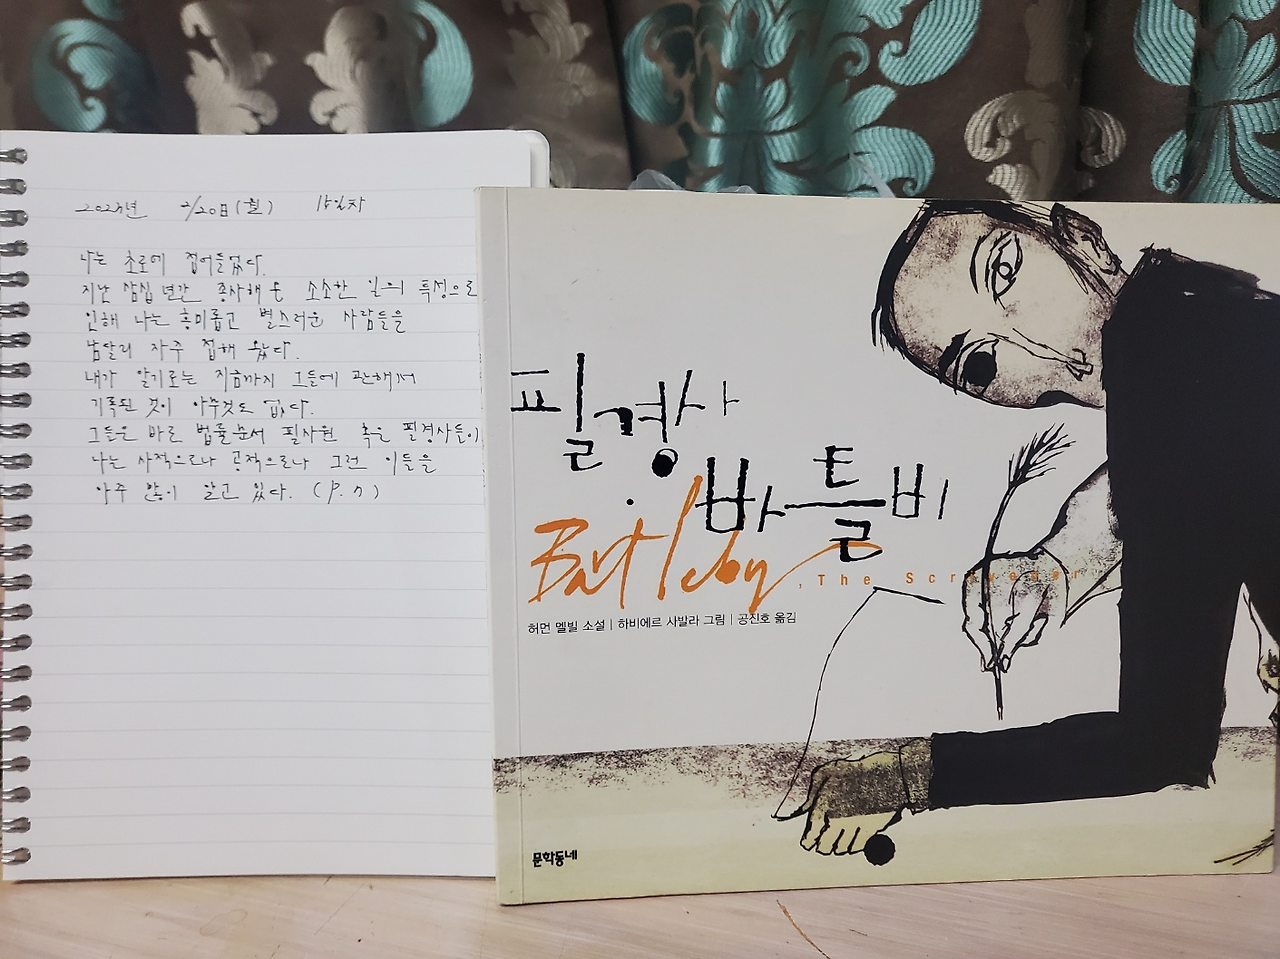 2023년 2/20日(월) 13일차
나는 초로에 접어들었다.
지난 삼십 년간 종사해 온 소소한 일의 특성으로
인해 나는 흥미롭고 별스러운 사람들을
남달리 자주 접해 왔다.
내가 알기로는 지금까지 그들에 관해서
기록된 것이 아무것도 없다.
그들은 바로 법률문서 필사원 혹은 필경사들이
나는 사적으로나 공적으로나 그런 이들을
아주 많이 알고 있다. (p.7)
필경사
바틀비
Bartleby, The Scrivener
허먼 멜빌 소설 | 하비에르 사발라 그림 | 공진호 옮김
문학동네